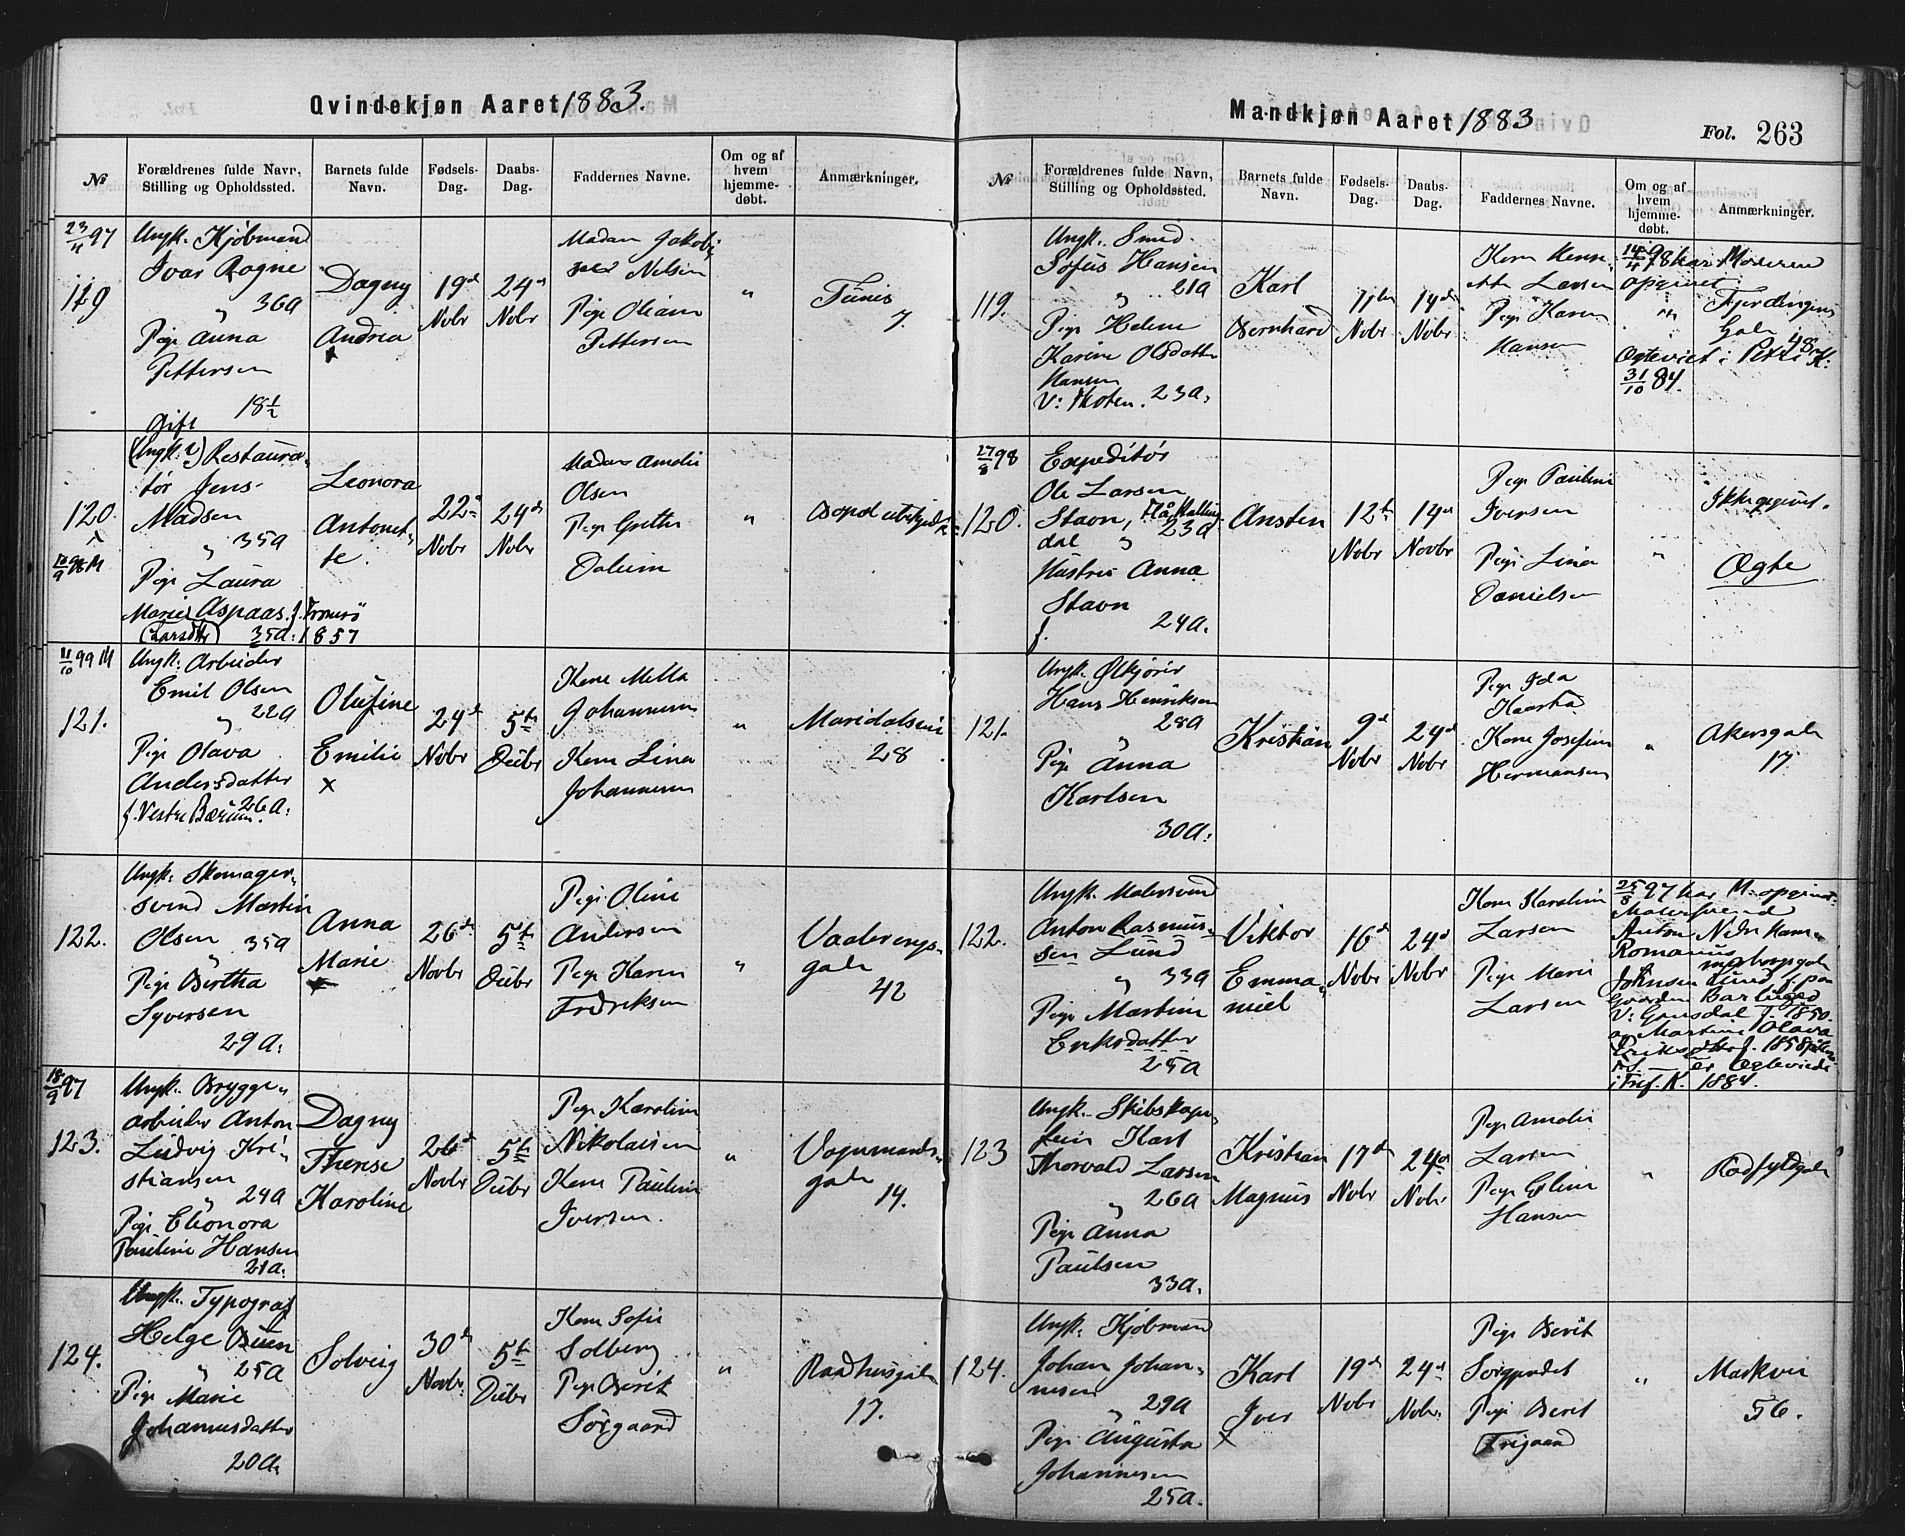 Qvindekjøn Aaret 1883.
No
Forældrenes fulde Navn,
Stilling og Opholdssted.
Barnets fulde
Navn.
Fødsels-
Dag.
Daabs-
Dag.
Faddernes Navne.
Om og af
hvem
hjemme-
døbt.
Anmærkninger.
23/4 97
119
Ungk. Kjøbmand
Ivar Rogne
" 36a
Pige Anna
Pettersen
18½
Dagny
Andrea
19d
Nobr
24d
Nobr
Madam Jakobi
Nilsen
Pige
Pettersen
"
Tunis
7.
120.
gift
(Ungk. ?) Restaura-
tør Jens
Madsen
" 35a
Pige Laura
Marie Aspaas. f. Tromsø
(Larsdtr) 35a. 1857
Leonora
Antonet-
te.
22d
Nobr
24d
Nobr
Madam Amalie
Olsen
Pige Grethe
"
11/10 99 M
121.
Ungk. Arbeider
Emil Olsen
" 22a
Pige Olava
Andersdatter
f. Vestre Bærum. 26a.
Olufine
Emilie
x
24d
Nobr
5te
Debr
Kone Mella
Johannesen
Kone Lina
Johannesen
"
Maridalsvei
28
122.
Ungk. Skomager-
svend Martin
Olsen 35a
"
Pige Bertha
Syversen
29a.
Anna
Marie
26de
Novbr
5te
Debr
Pige Oline
Andersen
Pige Karen
Fredriksen
"
Vaalerengs-
gade
42
18/9 97
123.
Ungk. Brygge-
arbeider Anton
Ludvig Kri-
stiansen
" 24a
Pige Eleonora
Pauline Hansen
21a.
Dagny
Therese
Karoline
26d
Novbr
5te
Debr
Pige Karoline
Nikolaisen
Kone Pauline
Iversen.
"
Vognmands-
gade
14.
124.
Ungk. Typograf
Helge Buen
" 25a
Pige Marie
Johannesdatter
20a.
Solveig
30d
Novbr.
5te
Debr
Kone Sofie
Solberg
Pige Berit
Sörgaard
"
Raadhusgade
17.
Mandkjøn Aaret 1883
Fol. 263
No
Forældrenes fulde Navn,
Stilling og Opholdssted.
Barnets fulde
Navn.
Fødsels-
Dag.
Daabs-
Dag.
Faddernes Navne.
Om og af
hvem
hjemme-
døbt.
Anmærkninger.
119.
Ungk. Smed
Sofus Hansen
" 21a
Pige Helene
Karine Olsdatter
Hansen
V. Moten. 23a.
Karl
Bernhard
11te
Nobr
14de
Nobr
Larsen
Pige Karen
Hansen
14/4 98 har Moderen
opgivet
"
Fjerdingens
Gade 48
Ægteviet i Petri K.
31/10 84.
27/8 98
120.
Expeditör
Ole Larsen
Stavn, Flå, Halling-
dal " 23a
Hustru Anna
Stavn
f. 24a.
Ansten
12te
Nobr
14de
Novbr
Pige Pauline
Iversen
Pige Lina
Danielsen
"
Ikke opgivet.
Ægte
121.
Ungk. Ølkjører
Hans Henriksen
28a
"
Pige Anna
Karlsen
30a.
Kristian
9d
Nobr
24d
Nobr
Pige Ida
Kaasha
Kone Josefine
Hermansen
"
Akersgade
17
122.
Ungk. Malersvend
Anton Rasmus-
sen Lund
" 33a
Pige Martine
Eriksdatter
25a
Viktor
Emma-
nuel
16d
Nobr
24d
Nobr
Kone Karoline
Larsen
Pige Marie
Larsen
25/8 97 har M. opgivet:
Malersvend
Anton
Romanus
Johnsen Lund f. paa
Gaarden
V. Gausdal f. 1850.
og Martine Olava
Eriksdtr f. 1858
er Ægteviede
i Tref. K. 1884.
123
Ungk. Skibskap-
tein Karl
Thorvald Larsen
" 26a
Pige Anna
Paulsen
33a.
Kristian
Magnus
17de
Nobr
24de
Nobr
Pige Amalie
Larsen
Pige Eline
Hansen
"
Rødfyldgade
124.
Ungk. Kjøbmand
Johan Johan-
nesen
" 29a
Pige Augusta
Johannesen
25a.
Karl
Iver
x
19d
Nobr
24d
Nobr.
Pige Berit
Pige Berit
"
Markvei
56.